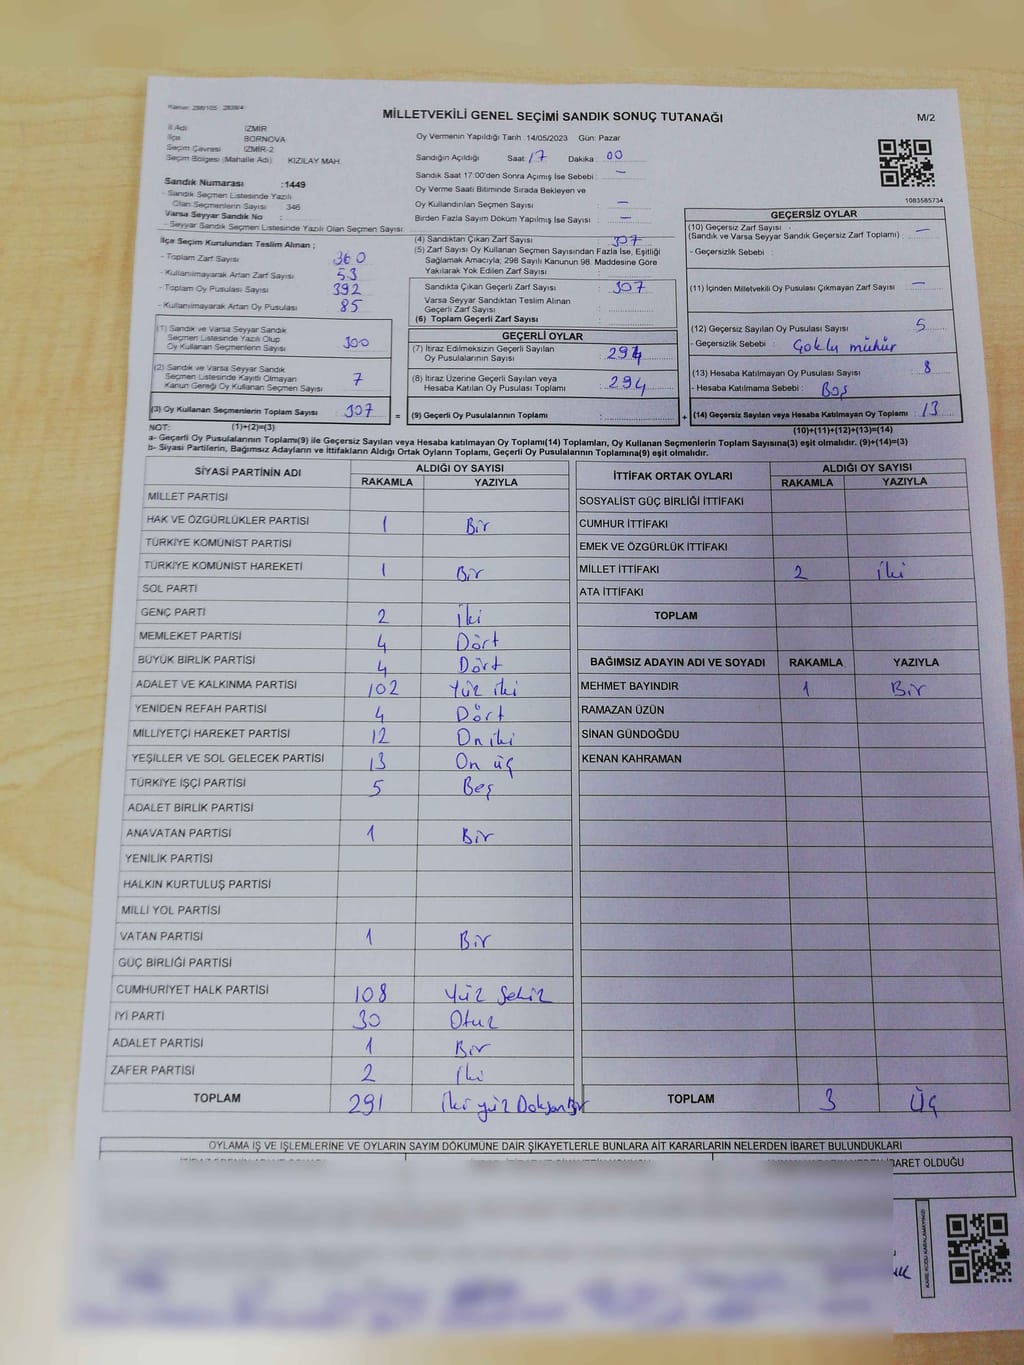 MİLLETVEKİLİ GENEL SEÇİMİ SANDIK SONUÇ TUTANAĞI
M/2
İl Adı İZMİR
İlçe BORNOVA
Seçim Çevresi İZMİR-2
Seçim Bölgesi (Mahalle Adı) KIZILAY MAH.
Sandık Numarası :1449
- Sandık Seçmen Listesinde Yazılı
Olan Seçmenlerin Sayısı 346
Varsa Seyyar Sandık No :
- Seyyar Sandık Seçmen Listesinde Yazılı Olan Seçmen Sayısı:
Oy Vermenin Yapıldığı Tarih 14/05/2023 Gün: Pazar
Sandığın Açıldığı Saat: 17 Dakika : 00
Sandık Saat 17:00'den Sonra Açımış İse Sebebi : —
Oy Verme Saati Bitiminde Sırada Bekleyen ve
Oy Kullandırılan Seçmen Sayısı : —
Birden Fazla Sayım Döküm Yapılmış İse Sayısı : —
1083585734
İlçe Seçim Kurulundan Teslim Alınan ;
- Toplam Zarf Sayısı : 360
- Kullanılmayarak Artan Zarf Sayısı : 53
- Toplam Oy Pusulası Sayısı : 392
- Kullanılmayarak Artan Oy Pusulası : 85
(1) Sandık ve Varsa Seyyar Sandık
Seçmen Listesinde Yazılı Olup
Oy Kullanan Seçmenlerin Sayısı : 300
(2) Sandık ve Varsa Seyyar Sandık
Seçmen Listesinde Kayıtlı Olmayan
Kanun Gereği Oy Kullanan Seçmen Sayısı : 7
(3) Oy Kullanan Seçmenlerin Toplam Sayısı : 307
(1)+(2)=(3)
(4) Sandıktan Çıkan Zarf Sayısı : 307
(5) Zarf Sayısı Oy Kullanan Seçmen Sayısından Fazla İse, Eşitliği
Sağlamak Amacıyla; 298 Sayılı Kanunun 98. Maddesine Göre
Yakılarak Yok Edilen Zarf Sayısı :
Sandıkta Çıkan Geçerli Zarf Sayısı : 307
Varsa Seyyar Sandıktan Teslim Alınan
Geçerli Zarf Sayısı :
(6) Toplam Geçerli Zarf Sayısı :
GEÇERLİ OYLAR
(7) İtiraz Edilmeksizin Geçerli Sayılan
Oy Pusulalarının Sayısı : 294
(8) İtiraz Üzerine Geçerli Sayılan veya
Hesaba Katılan Oy Pusulası Toplamı : 294
= (9) Geçerli Oy Pusulalarının Toplamı :
GEÇERSİZ OYLAR
(10) Geçersiz Zarf Sayısı
(Sandık ve Varsa Seyyar Sandık Geçersiz Zarf Toplamı) : —
- Geçersizlik Sebebi :
(11) İçinden Milletvekili Oy Pusulası Çıkmayan Zarf Sayısı : —
(12) Geçersiz Sayılan Oy Pusulası Sayısı : 5
- Geçersizlik Sebebi : Çoklu mühür
(13) Hesaba Katılmayan Oy Pusulası Sayısı : 8
- Hesaba Katılmama Sebebi : Boş
+ (14) Geçersiz Sayılan veya Hesaba Katılmayan Oy Toplamı : 13
(10)+(11)+(12)+(13)=(14)
NOT:
a- Geçerli Oy Pusulalarının Toplamı(9) ile Geçersiz Sayılan veya Hesaba katılmayan Oy Toplamı(14) Toplamları, Oy Kullanan Seçmenlerin Toplam Sayısına(3) eşit olmalıdır. (9)+(14)=(3)
b- Siyasi Partilerin, Bağımsız Adayların ve İttifakların Aldığı Ortak Oyların Toplamı, Geçerli Oy Pusulalarının Toplamına(9) eşit olmalıdır.
SİYASİ PARTİNİN ADI ALDIĞI OY SAYISI
RAKAMLA YAZIYLA
MİLLET PARTİSİ
HAK VE ÖZGÜRLÜKLER PARTİSİ 1 Bir
TÜRKİYE KOMÜNİST PARTİSİ
TÜRKİYE KOMÜNİST HAREKETİ 1 Bir
SOL PARTİ
GENÇ PARTİ 2 İki
MEMLEKET PARTİSİ 4 Dört
BÜYÜK BİRLİK PARTİSİ 4 Dört
ADALET VE KALKINMA PARTİSİ 102 Yüz iki
YENİDEN REFAH PARTİSİ 4 Dört
MİLLİYETÇİ HAREKET PARTİSİ 12 On iki
YEŞİLLER VE SOL GELECEK PARTİSİ 13 On üç
TÜRKİYE İŞÇİ PARTİSİ 5 Beş
ADALET BİRLİK PARTİSİ
ANAVATAN PARTİSİ 1 Bir
YENİLİK PARTİSİ
HALKIN KURTULUŞ PARTİSİ
MİLLİ YOL PARTİSİ
VATAN PARTİSİ 1 Bir
GÜÇ BİRLİĞİ PARTİSİ
CUMHURİYET HALK PARTİSİ 108 Yüz Sekiz
İYİ PARTİ 30 Otuz
ADALET PARTİSİ 1 Bir
ZAFER PARTİSİ 2 İki
TOPLAM 291 İki yüz Doksan Bir
İTTİFAK ORTAK OYLARI ALDIĞI OY SAYISI
RAKAMLA YAZIYLA
SOSYALİST GÜÇ BİRLİĞİ İTTİFAKI
CUMHUR İTTİFAKI
EMEK VE ÖZGÜRLÜK İTTİFAKI
MİLLET İTTİFAKI 2 İki
ATA İTTİFAKI
TOPLAM
BAĞIMSIZ ADAYIN ADI VE SOYADI RAKAMLA YAZIYLA
MEHMET BAYINDIR 1 Bir
RAMAZAN ÜZÜN
SİNAN GÜNDOĞDU
KENAN KAHRAMAN
TOPLAM 3 Üç
OYLAMA İŞ VE İŞLEMLERİNE VE OYLARIN SAYIM DÖKÜMÜNE DAİR ŞİKAYETLERLE BUNLARA AİT KARARLARIN NELERDEN İBARET BULUNDUKLARI
İBARET OLDUĞU
KARE KODU KARALAMAYINIZ!